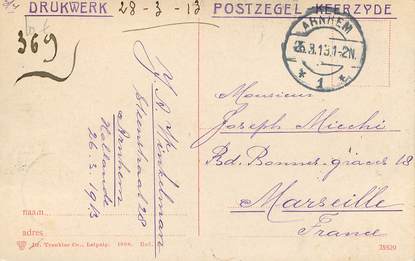 DRUKWERK 28-3-13 POSTZEGEL KEERZYDE
369
ARNHEM
26.3.13.1-2N.
* 1 *
Monsieur
Joseph Micchi
Bd. Bonnes-graces 18
Marseille
France
J. A. Th. Winkelman
Steenstraat 28
Arnhem
Hollande
26.3.1913
naam
adres
Dr. Trenkler Co., Leipzig. 1908.